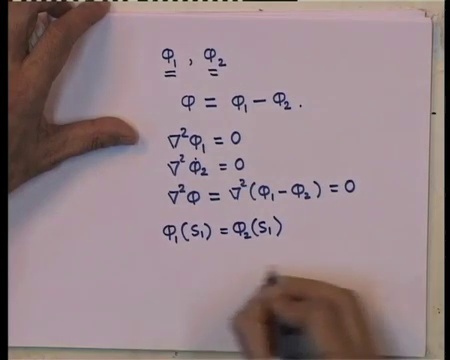 φ₁ , φ₂
φ = φ₁ − φ₂ .
∇²φ₁ = 0
∇²φ₂ = 0
∇²φ = ∇²(φ₁ − φ₂) = 0
φ₁(S₁) = φ₂(S₁)